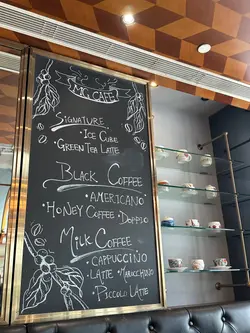 MG CAFÉ
SIGNATURE
• ICE CUBE
GREEN TEA LATTE
BLACK COFFEE
• AMERICANO
• HONEY COFFEE • DOPPIO
MILK COFFEE
• CAPPUCCINO
• LATTE • MAROCCHINO
• PICCOLO LATTE